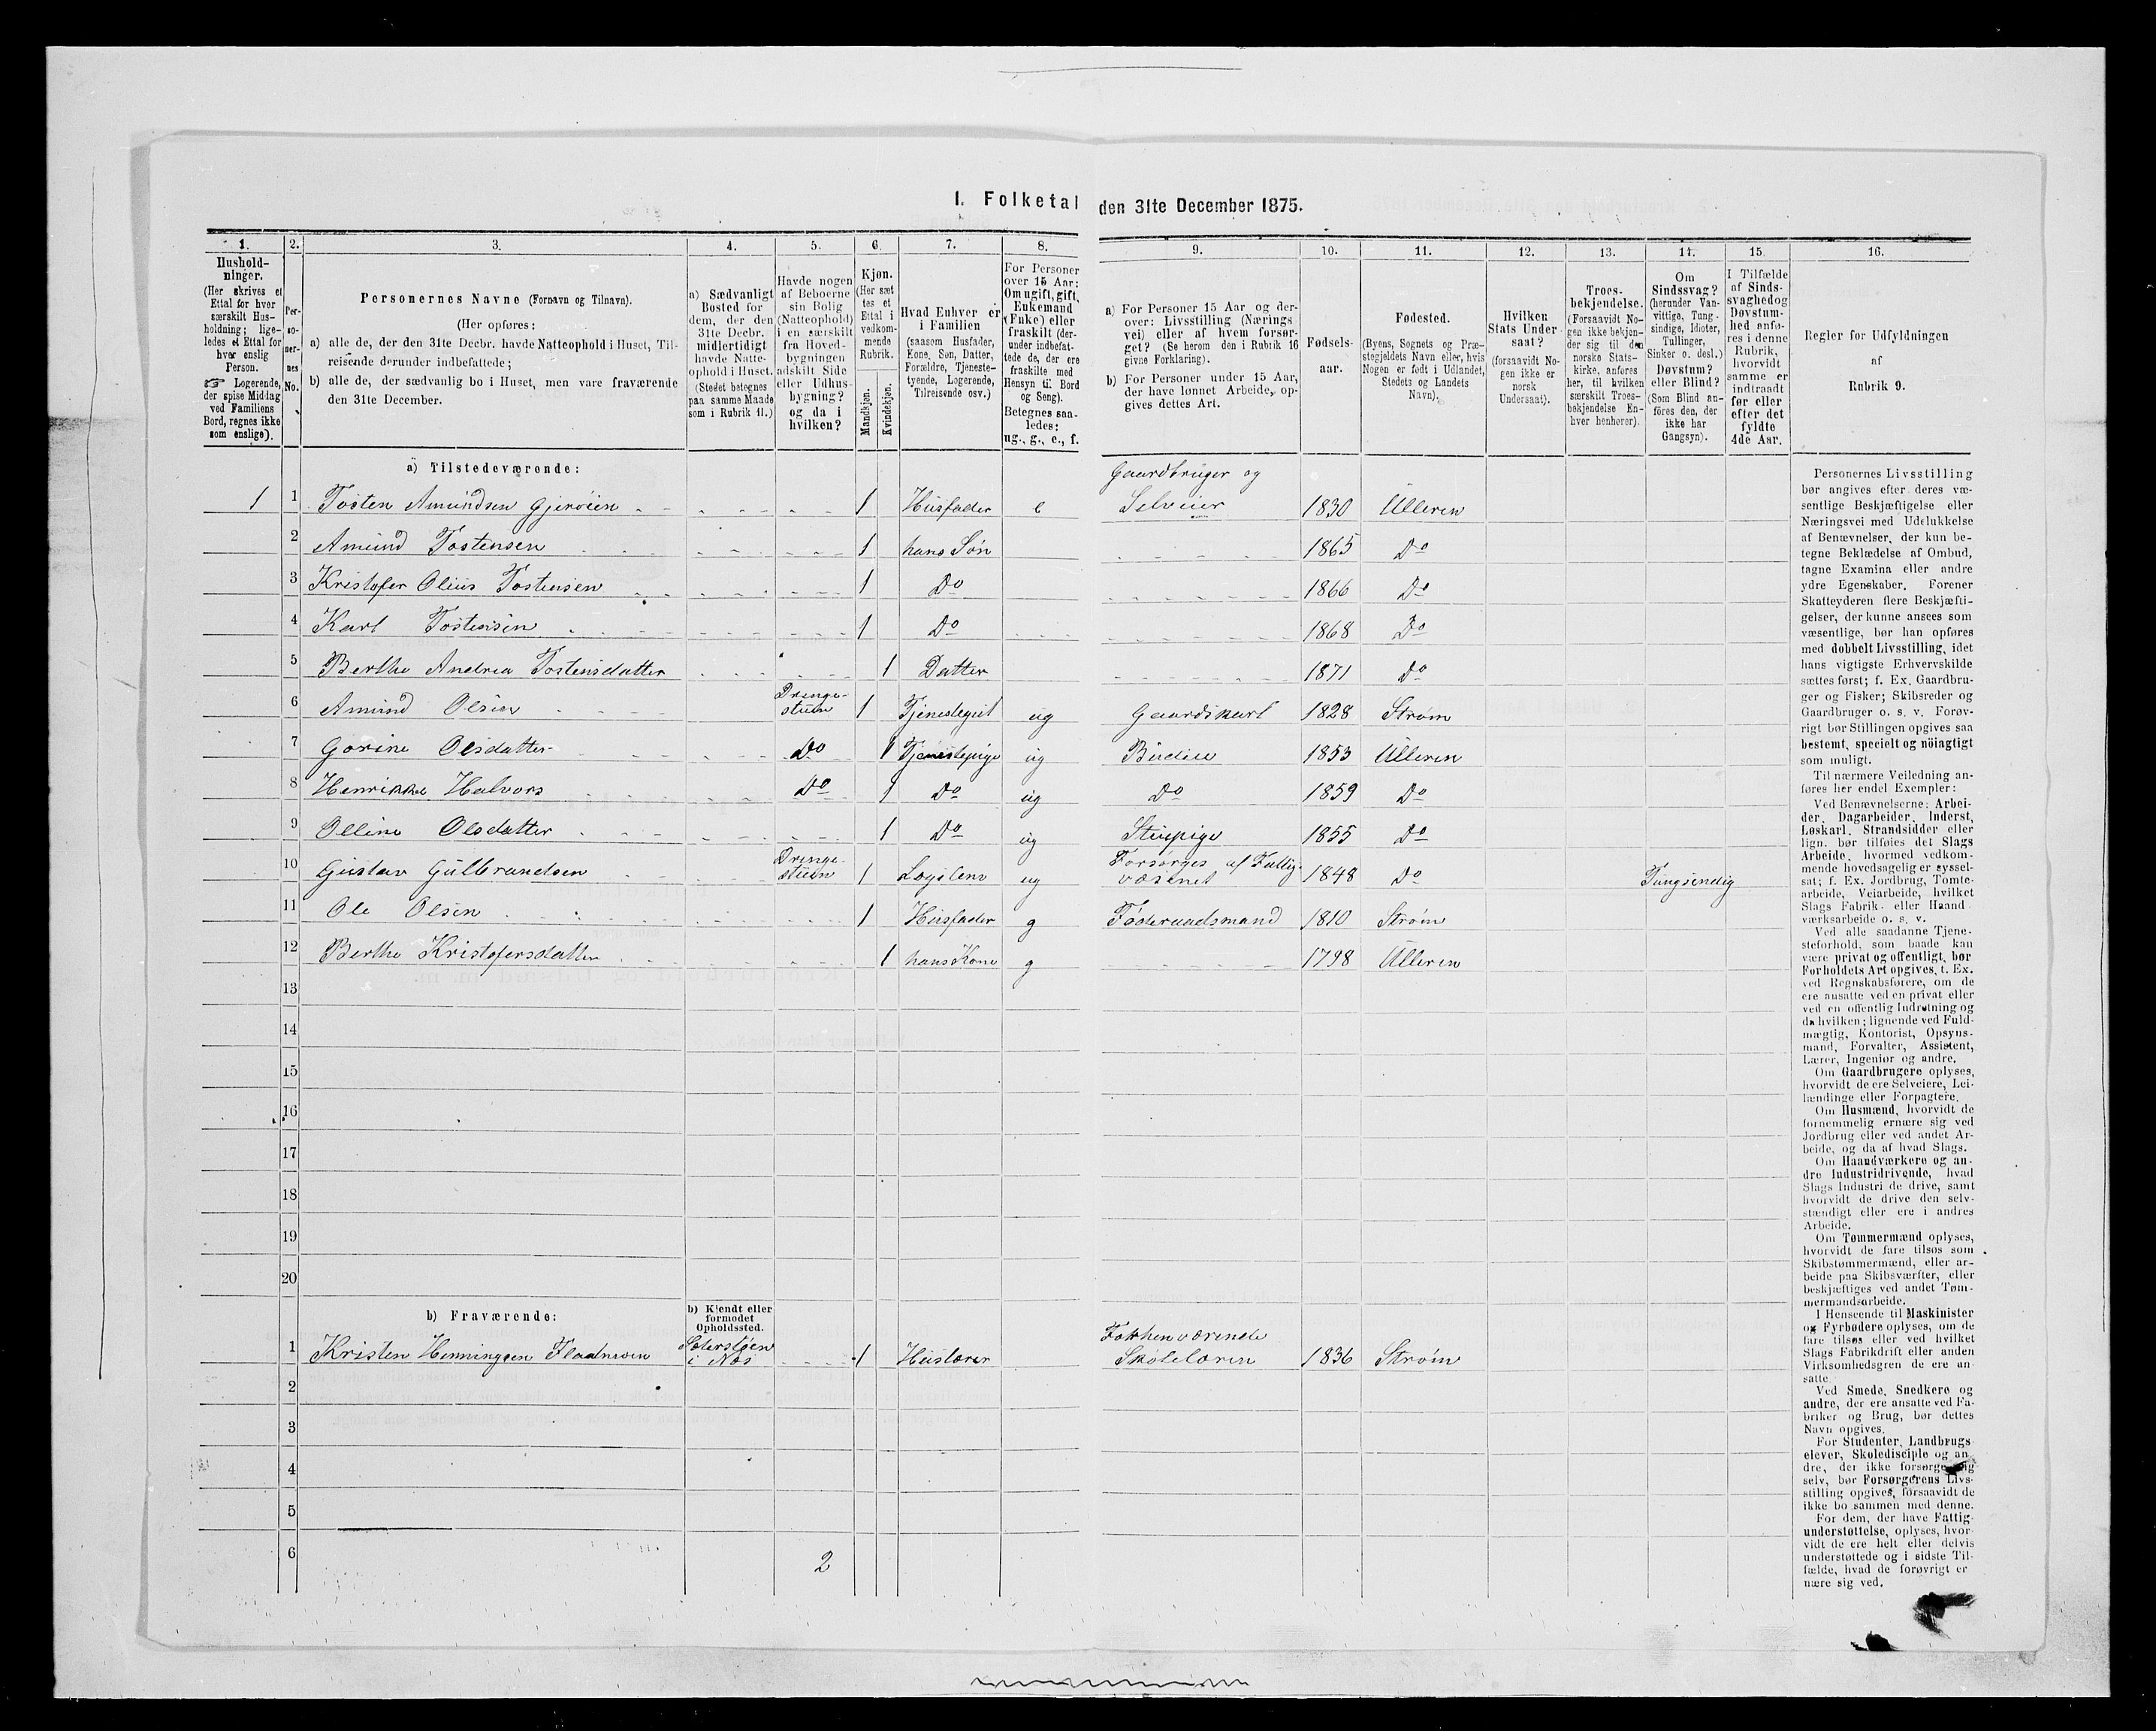 I. Folketal den 31te December 1875.
1. 2. 3. 4. 5. 6. 7. 8. 9. 10. 11. 12. 13. 14. 15. 16.
Hushold-
ninger.
(Her skrives et
Ettal for hver
særskilt Hus-
holdning; lige-
ledes et Ettal for
hver enslig
Person.
☞ Logerende,
der spise Middag
ved Familiens
Bord, regnes ikke
som enslige).
Per-
so-
ner-
nes
No.
Personernes Navne (Fornavn og Tilnavn).
(Her opføres:
a) alle de, der den 31te Decbr. havde Natteophold i Huset, Til-
reisende derunder indbefattede;
b) alle de, der sædvanlig bo i Huset, men vare fraværende
den 31te December.
a) Sædvanligt
Bosted for
dem, der den
31te Decbr.
midlertidigt
havde Natte-
ophold i Huset.
(Stedet betegnes
paa samme Maade
som i Rubrik 11.)
Havde nogen
af Beboerne
sin Bolig
(Natteophold)
i en særskilt
fra Hoved-
bygningen
adskilt Side
eller Udhus-
bygning?
og da i
hvilken?
Kjøn.
(Her sæt
tes et
Ettal i
vedkom-
mende
Rubrik.
Mandkjøn.
Kvindekjøn.
Hvad Enhver er
i Familien
(saasom Husfader,
Kone, Søn, Datter,
Forældre, Tjeneste-
tyende, Logerende,
Tilreisende osv.)
For Personer
over 15 Aar:
Om ugift, gift,
Enkemand
(Enke) eller
fraskilt (der-
under indbefat-
tede de, der ere
fraskilte med
Hensyn til Bord
og Seng).
Betegnes saa-
ledes:
ug., g., e., f.
a) For Personer 15 Aar og der-
over: Livsstilling (Nærings
vei) eller af hvem forsør-
get? (Se herom den i Rubrik 16
givne Forklaring).
b) For Personer under 15 Aar,
der have lønnet Arbeide, op-
gives dettes Art.
Fødsels-
aar.
Fødested.
(Byens, Sognets og Præ-
stegjeldets Navn eller, hvis
Nogen er født i Udlandet,
Stedets og Landets
Navn).
Hvilken
Stats Under-
saat?
(forsaavidt No-
gen ikke er
norsk
Undersaat).
Troes-
bekjendelse.
(Forsaavidt No-
gen ikke bekjen-
der sig til den
norske Stats-
kirke, anføres
her, til hvilken
særskilt Troes-
bekjendelse En-
hver henhører).
Om
Sindssvag?
(herunder Van-
vittige, Tung-
sindige, Idioter,
Tullinger,
Sinker o. desl.)
Døvstum?
eller Blind?
(Som Blind an-
føres den, der
ikke har
Gangsyn).
I Tilfælde
af Sinds-
svaghed og
Døvstum-
hed anfø-
res i denne
Rubrik,
hvorvidt
samme er
indtraadt
før eller
efter det
fyldte
4de Aar.
Regler for Udfyldningen
af
Rubrik 9.
a) Tilstedeværende:
Gaardbruger og
1 1 Tosten Amundsen Gjerøien 1 Husfader e Selveier 1830 Ulleren
2 Amund Tostensen 1 hans Søn 1865 Do
3 Kristofer Olius Tostensen 1 Do 1866 Do
4 Karl Tostensen 1 Do 1868 Do
5 Berthe Andrea Tostensdatter 1 Datter 1871 Do
Drenge-
6 Amund Olsen stuen 1 Tjenestegut ug Gaardskarl 1828 Strøm
7 Gorine Olsdatter Do 1 Tjenestepige ug Budeie 1853 Ulleren
8 Henrikke Halvors Do 1 Do ug Do 1859 Do
9 Olline Olsdatter 1 Do ug Stuepige 1855 Do
Drenge- Forsørges af Fattig-
10 Gustav Gulbrandsen stuen 1 Lægslem ug væsenet 1848 Do Tungsindig
11 Ole Olsen 1 Husfader g Føderaadsmand 1810 Strøm
12 Berthe Kristofersdatter 1 hans Kone g 1798 Ulleren
13
14
15
16
17
18
19
20
b) Fraværende:
b) Kjendt eller
formodet
Opholdssted.
1 Kristen Henningsen i Nes 1 Huslærer Skolelærer 1836 Strøm
2
3
4
5
6
2
Personernes Livsstilling
bør angives efter deres væ-
sentlige Beskjæftigelse eller
Næringsvei med Udelukkelse
af Benævnelser, der kun be-
tegne Beklædelse af Ombud,
tagne Examina eller andre
ydre Egenskaber. Forener
Skatteyderen flere Beskjæfti-
gelser, der kunne ansees som
væsentlige, bør han opføres
med dobbelt Livsstilling, idet
hans vigtigste Erhvervskilde
sættes først; f. Ex. Gaardbru-
ger og Fisker; Skibsreder og
Gaardbruger o. s. v. Forøv-
rigt bør Stillingen opgives saa
bestemt, specielt og nöiagtigt
som muligt.
Til nærmere Veiledning an-
føres her endel Exempler:
Ved Benævnelserne: Arbei-
der, Dagarbeider, Inderst,
Løskarl, Strandsidder eller
lign. bør tilføies det Slags
Arbeide, hvormed vedkom-
mende hovedsagelig er syssel-
sat; f. Ex. Jordbrug, Tomte-
arbeide, Veiarbeide, hvilket
Slags Fabrik- eller Haand-
værksarbeide o. s. v.
Ved alle saadanne Tjene-
steforhold, som baade kan
være privat og offentligt, bør
Forholdets Art opgives, t. Ex.
ved Regnskabsførere, om de
ere ansatte ved en privat eller
ved en offentlig Indretning og
da hvilken; lignende ved Fuld-
mægtig, Kontorist, Opsyns-
mand, Forvalter, Assistent,
Lærer, Ingeniør og andre.
Om Gaardbrugere oplyses,
hvorvidt de ere Selveiere, Lei-
lændinge eller Forpagtere.
Om Husmænd, hvorvidt de
fornemmelig ernære sig ved
Jordbrug eller ved andet Ar-
beide, og da af hvad Slags.
Om Haandværkere og an-
dre Industridrivende, hvad
Slags Industri de drive, samt
hvorvidt de drive den selv-
stændigt eller ere i andres
Arbeide.
Om Tømmermænd oplyses,
hvorvidt de fare tilsøs som
Skibstømmermænd, eller ar-
beide paa Skibsværfter, eller
beskjæftiges ved andet Tøm-
mermandsarbeide.
I Henseende til Maskinister
og Fyrbødere oplyses, om de
fare tilsøs eller ved hvilket
Slags Fabrikdrift eller anden
Virksomhedsgren de ere an-
satte.
Ved Smede, Snedkere og
andre, der ere ansatte ved Fa-
briker og Brug, bør dettes
Navn opgives.
For Studenter, Landbrugs
elever, Skoledisciple og an-
dre, der ikke forsørge sig
selv, bør Forsørgerens Livs-
stilling opgives, forsaavidt de
ikke bo sammen med denne.
For dem, der have Fattig-
understøttelse, oplyses, hvor-
vidt de ere helt eller delvis
understøttede og i sidste Til-
fælde, hvad de forøvrigt er-
nære sig ved.